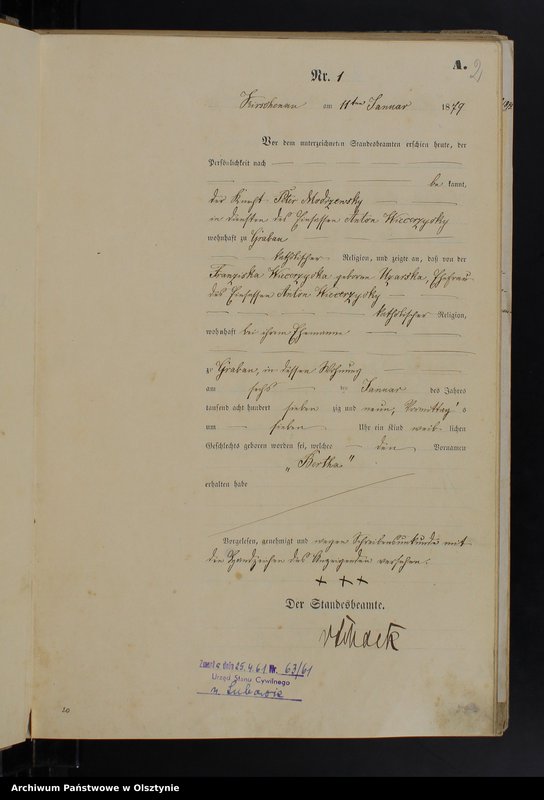 A. 2
Nr. 1
am 11ten Januar 1879
Vor dem unterzeichneten Standesbeamten erschien heute, der
Persönlichkeit nach
bekannt,
der Knecht Peter Modrzewsky
in Diensten des Einsassen Anton Wieczrzysky
wohnhaft zu Graban
katholischer Religion, und zeigte an, daß von der
Franziska geborene Ehefrau
des Einsassen Anton Wieczrzysky
katholischer Religion,
wohnhaft bei ihrem Ehemanne
zu Graban, in dessen Wohnung
am sechs ten Januar des Jahres
tausend acht hundert sieben zig und neun, Vormittag s
um sieben Uhr ein Kind weib lichen
Geschlechts geboren worden sei, welches den Vornamen
„Bertha"
erhalten habe
Vorgelesen, genehmigt und wegen Schreibensunkunde mit
den Handzeichen des Anzeigenden versehen.
+ ++
Der Standesbeamte.
25.4.61 Nr. 63/61
Urząd Stanu Cywilnego
w
20
Archiwum Państwowe w Olsztynie